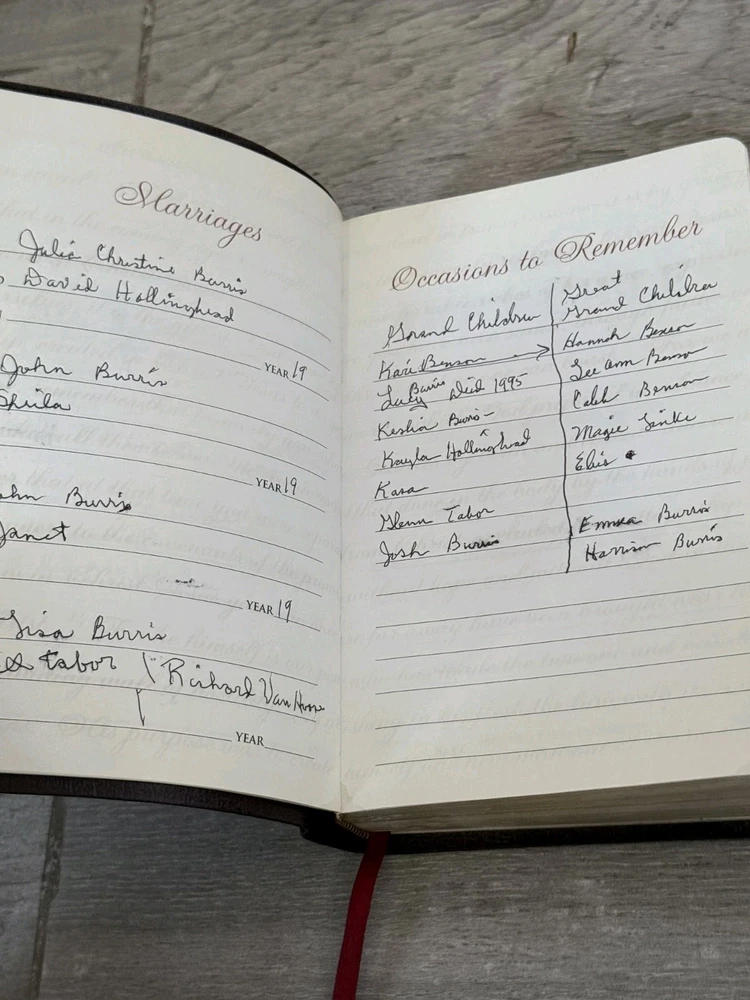 Marriages
Julie Christine Burris
David Hollinghead
YEAR 19
John Burris
Shila
YEAR 19
John Burris
Janet
YEAR 19
Lisa Burris
Tabor Richard Van
YEAR
Occasions to Remember
Grand Children
Kari Benson
Lucy Burris Died 1995
Keshia Burris
Kayla Hollinghead
Kara
Glenn Tabor
Josh Burris
Great
Grand Children
Hannah Benson
Lee Ann Benson
Caleb Benson
Magie Sinke
Elis
Emma Burris
Harrison Burris